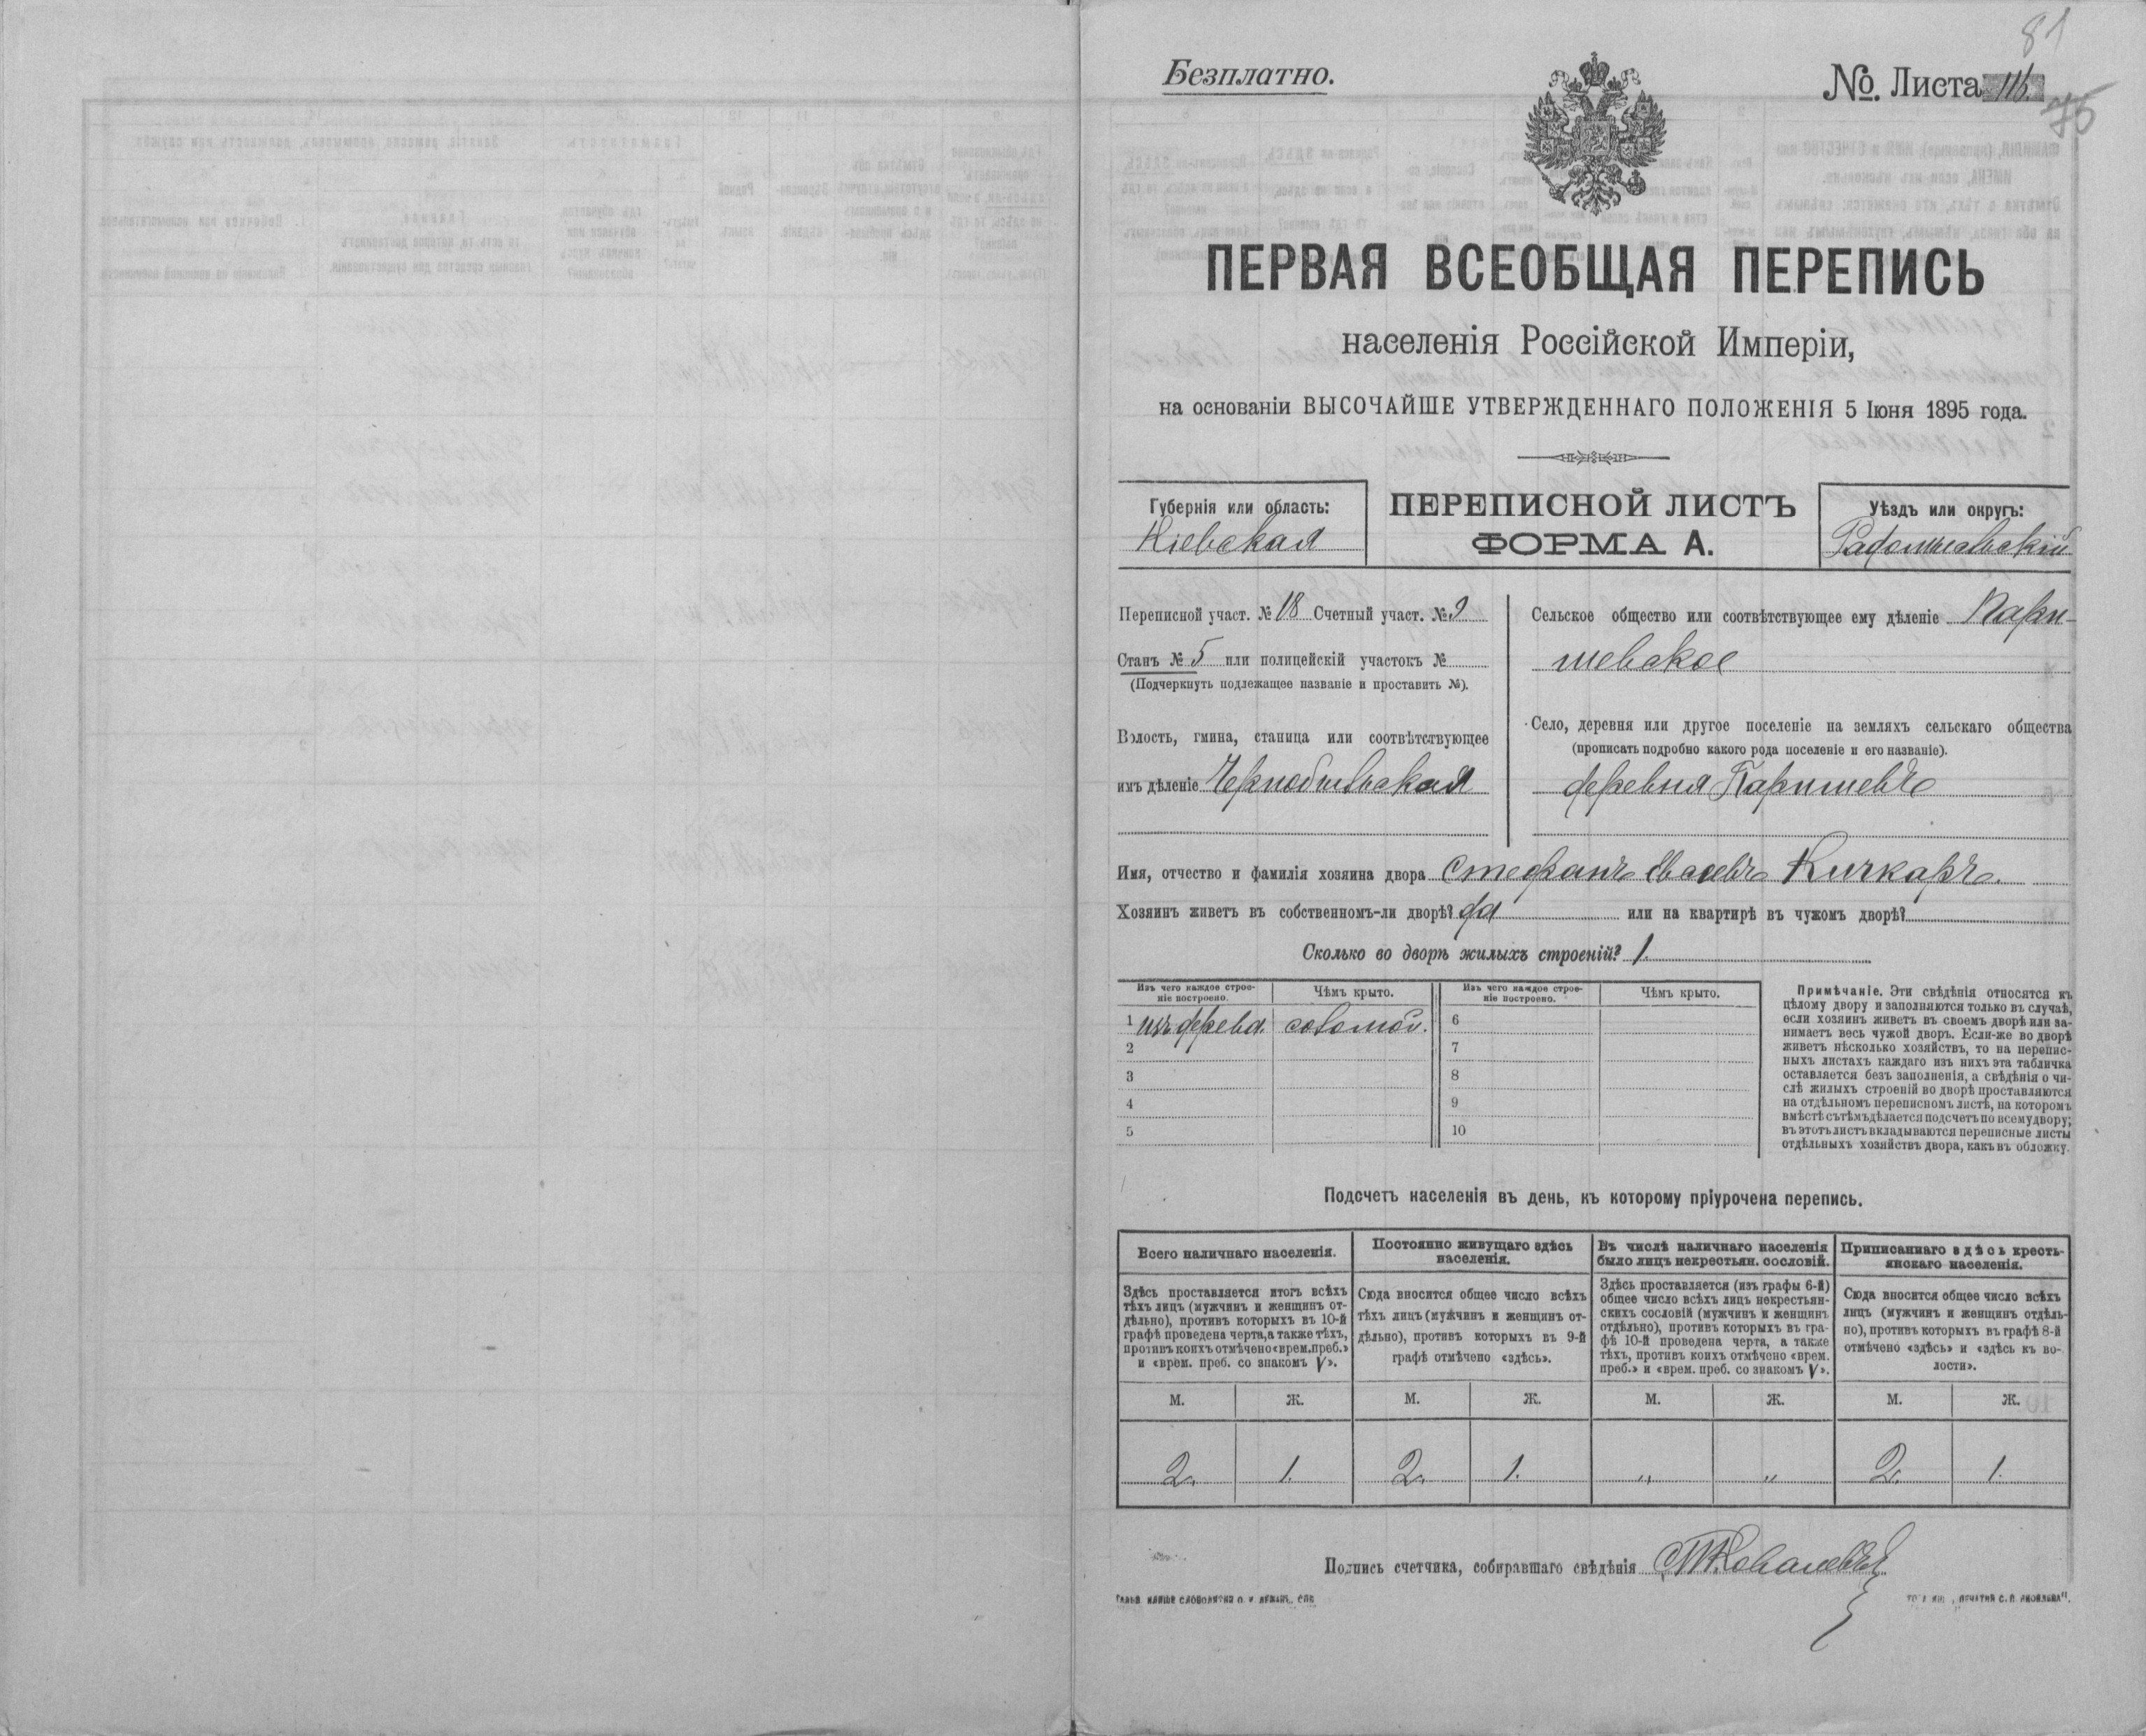 81
Безплатно.
№. Листа 116.
75
ПЕРВАЯ ВСЕОБЩАЯ ПЕРЕПИСЬ
населенія Россійской Имперіи,
на основаніи ВЫСОЧАЙШЕ УТВЕРЖДЕННАГО ПОЛОЖЕНІЯ 5 Іюня 1895 года.
Губернія или область:
Кіевская
ПЕРЕПИСНОЙ ЛИСТЪ
ФОРМА А.
Уѣздъ или округъ:
Радомысльскій
Переписной участ. № 18 Счетный участ. № 9
Станъ № 5 или полицейскій участокъ №
(Подчеркнуть подлежащее названіе и проставить №).
Волость, гмина, станица или соотвѣтствующее
имъ дѣленіе Чернобыльская
Сельское общество или соотвѣтствующее ему дѣленіе Пари-
шевское
Село, деревня или другое поселеніе на земляхъ сельскаго общества
(прописать подробно какого рода поселеніе и его названіе).
деревня Паришевъ
Имя, отчество и фамилія хозяина двора Стефанъ Кичкаръ.
Хозяинъ живетъ въ собственномъ-ли дворѣ? да или на квартирѣ въ чужомъ дворѣ?
Сколько во дворѣ жилыхъ строеній? 1.
Изъ чего каждое строе-
ніе построено.
Чѣмъ крыто.
Изъ чего каждое строе-
ніе построено.
Чѣмъ крыто.
1 изъ дерева. соломой. 6
2 7
3 8
4 9
5 10
Примѣчаніе. Эти свѣдѣнія относятся къ
цѣлому двору и заполняются только въ случаѣ,
если хозяинъ живетъ въ своемъ дворѣ или за-
нимаетъ весь чужой дворъ. Если-же во дворѣ
живетъ нѣсколько хозяйствъ, то на перепис-
ныхъ листахъ каждаго изъ нихъ эта табличка
оставляется безъ заполненія, а свѣдѣнія о чи-
слѣ жилыхъ строеній во дворѣ проставляются
на отдѣльномъ переписномъ листѣ, на которомъ
вмѣстѣ съ тѣмъ дѣлается подсчетъ по всему двору;
въ этотъ листъ вкладываются переписные листы
отдѣльныхъ хозяйствъ двора, какъ въ обложку.
Подсчетъ населенія въ день, къ которому пріурочена перепись.
Всего наличнаго населенія.
Здѣсь проставляется итогъ всѣхъ
тѣхъ лицъ (мужчинъ и женщинъ от-
дѣльно), противъ которыхъ въ 10-й
графѣ проведена черта, а также тѣхъ,
противъ коихъ отмѣчено «врем. преб.»
и «врем. преб. со знакомъ V».
Постоянно живущаго здѣсь
населенія.
Сюда вносится общее число всѣхъ
тѣхъ лицъ (мужчинъ и женщинъ от-
дѣльно), противъ которыхъ въ 9-й
графѣ отмѣчено «здѣсь».
Въ числѣ наличнаго населенія
было лицъ некрестьян. сословій.
Здѣсь проставляется (изъ графы 6-й)
общее число всѣхъ лицъ некрестьян-
скихъ сословій (мужчинъ и женщинъ
отдѣльно), противъ которыхъ въ гра-
фѣ 10-й проведена черта, а также
тѣхъ, противъ коихъ отмѣчено «врем.
преб.» и «врем. преб. со знакомъ V».
Приписаннаго здѣсь кресть-
янскаго населенія.
Сюда вносится общее число всѣхъ
лицъ (мужчинъ и женщинъ отдѣль-
но), противъ которыхъ въ графѣ 8-й
отмѣчено «здѣсь» и «здѣсь къ во-
лости».
М. Ж. М. Ж. М. Ж. М. Ж.
2. 1. 2. 1. „ „ 2. 1.
Подпись счетчика, собиравшаго свѣдѣнія